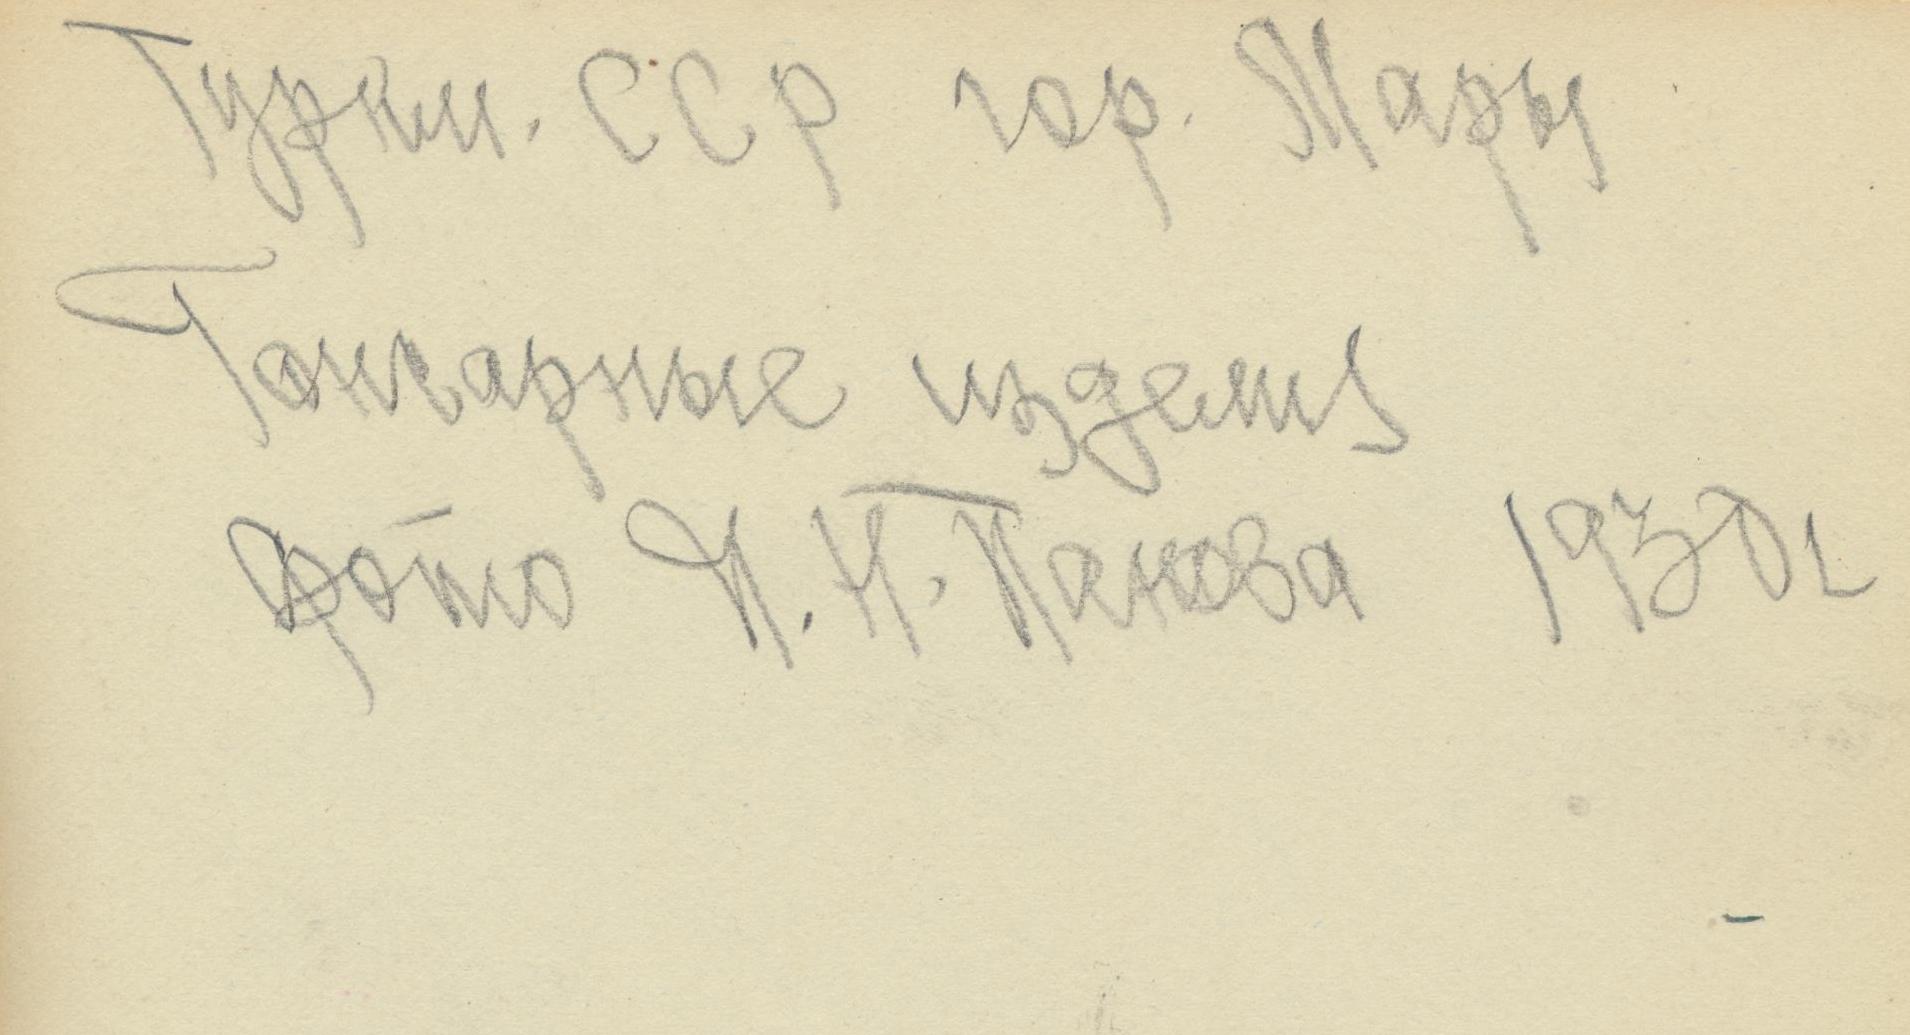 Туркм. ССР гор. Мары
Гончарные изделия
Фото И. Н. Панова 1930 г.